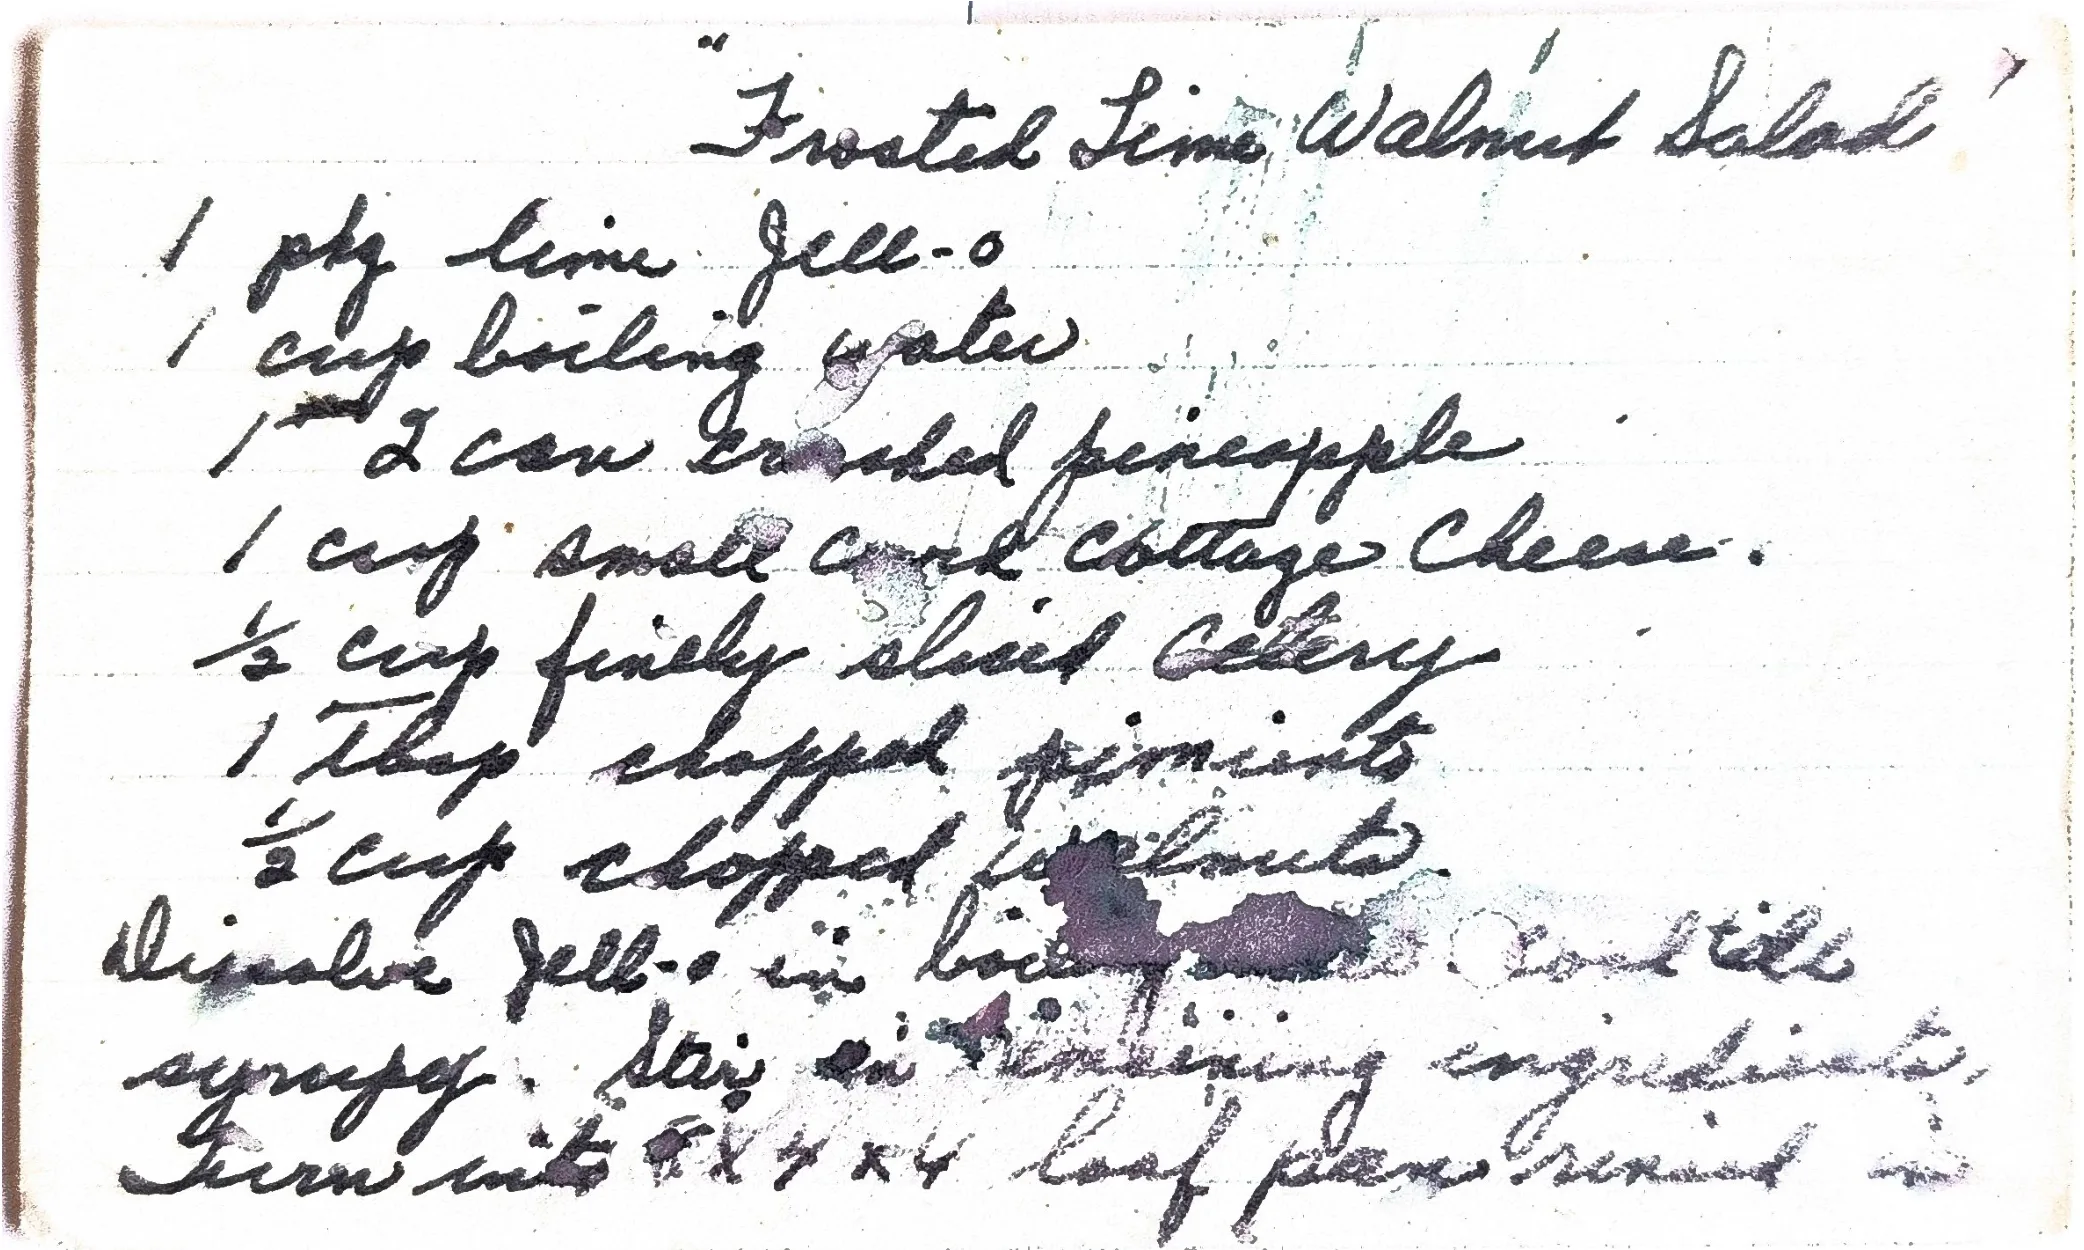 "Frosted Lime Walnut Salad"
1 pkg lime Jell-o
1 cup boiling water
1 2 can crushed pineapple
1 cup small curd Cottage Cheese.
½ cup finely sliced Celery
1 Tbsp chopped pimiento
½ cup chopped walnuts.
Dissolve Jell-o in Cool till
syrupy. Stir in ingredients,
Turn into X 4 x 4 loaf pan rinsed in